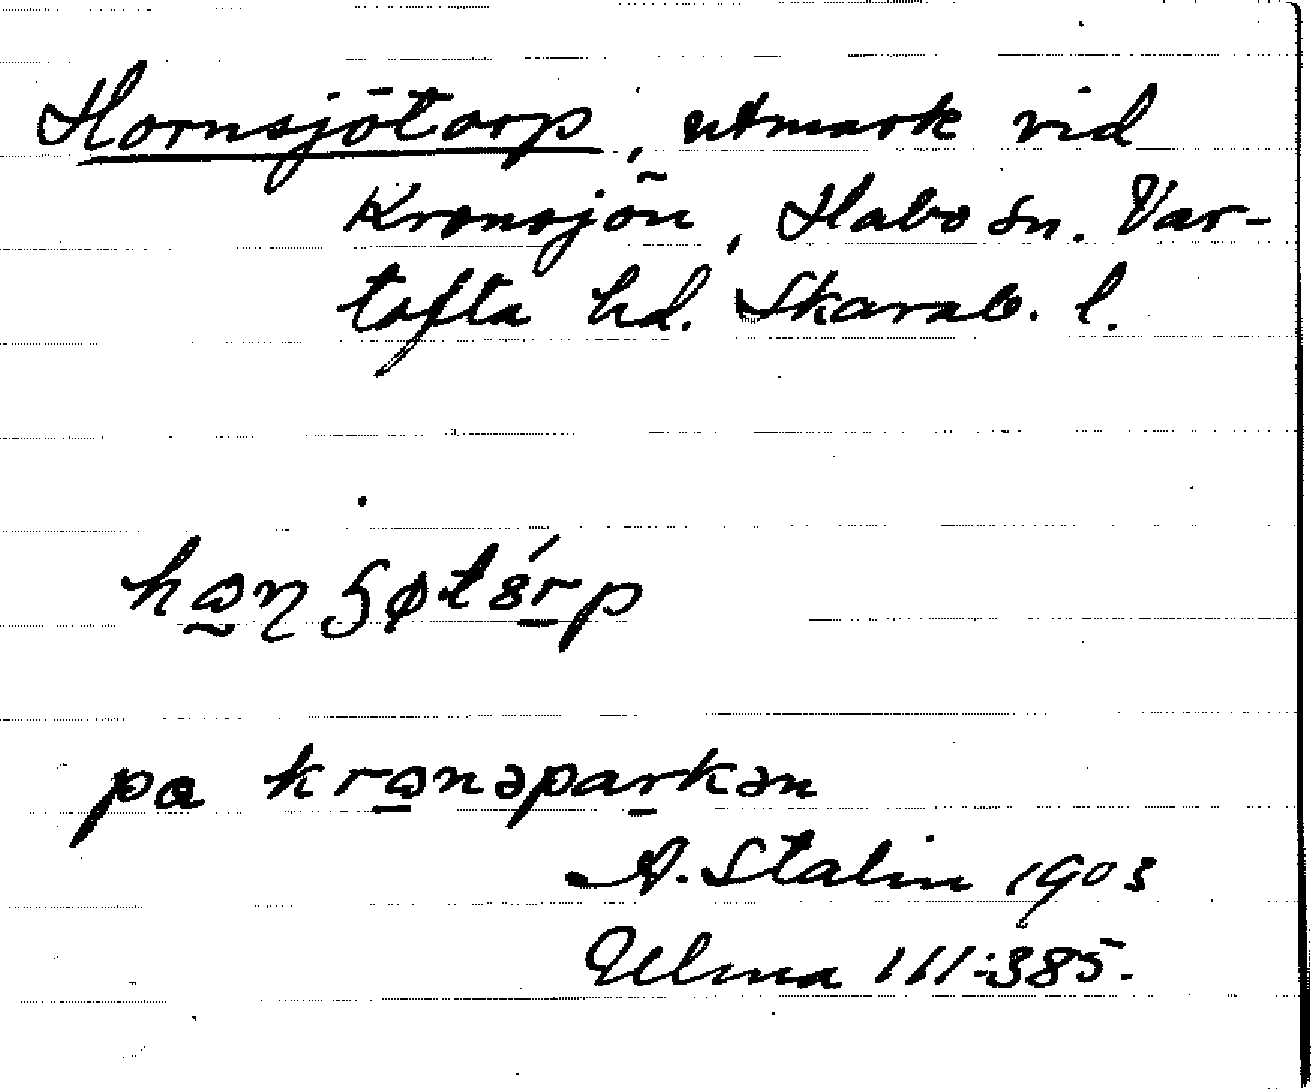 Hornsjötorp, utmark vid
Kronsjön, Habo sn. Var-
tofta hd. Skarab. l.
pa kronəparkən
A. Stalin 1903
Ulma 111:385.